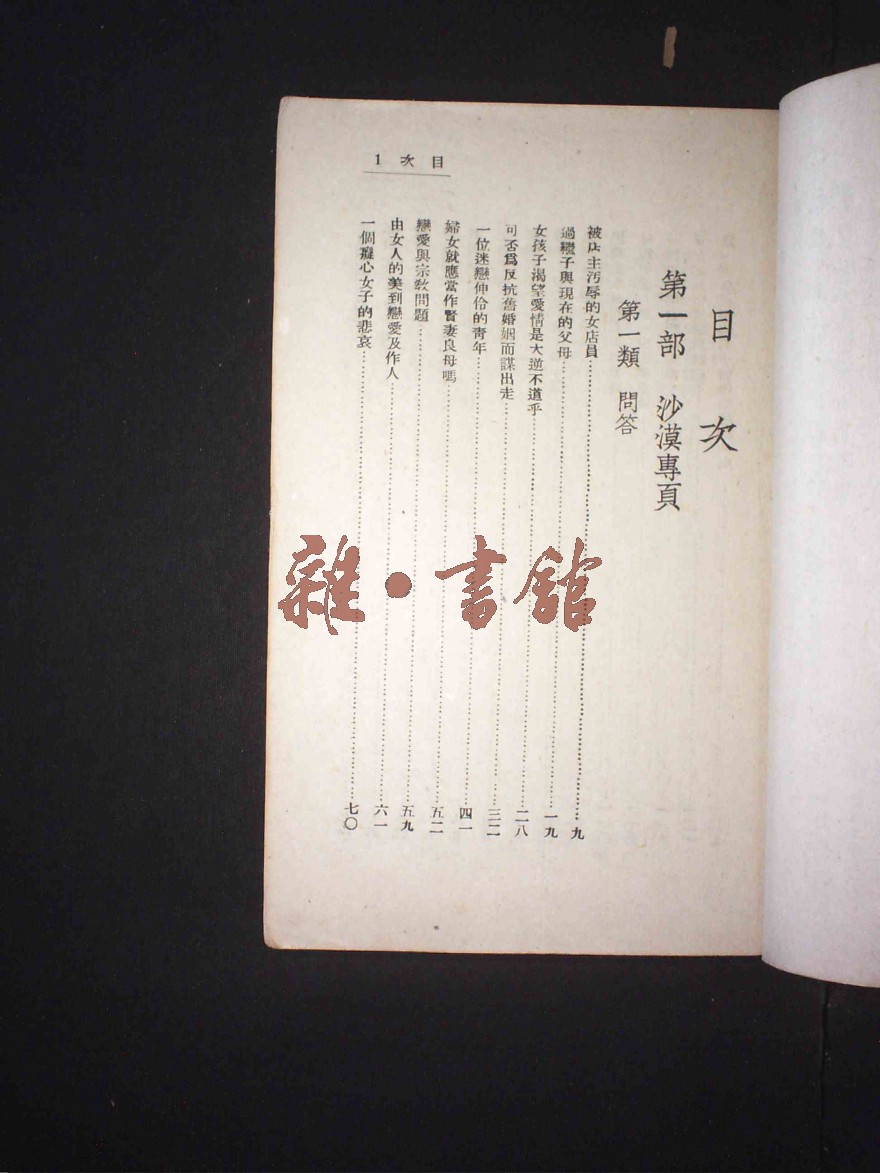 1 次 目
目次
第一部 沙漠專頁
第一類 問答
被店主汚辱的女店員……九
過繼子與現在的父母……一九
女孩子渴望愛情是大逆不道乎……二八
可否爲反抗舊婚姻而謀出走……三二
一位迷戀伸伶的靑年……四一
婦女就應當作賢妻良母嗎……五二
戀愛與宗敎問題……五九
由女人的美到戀愛及作人……六一
一個癡心女子的悲哀……七〇
雜·書館